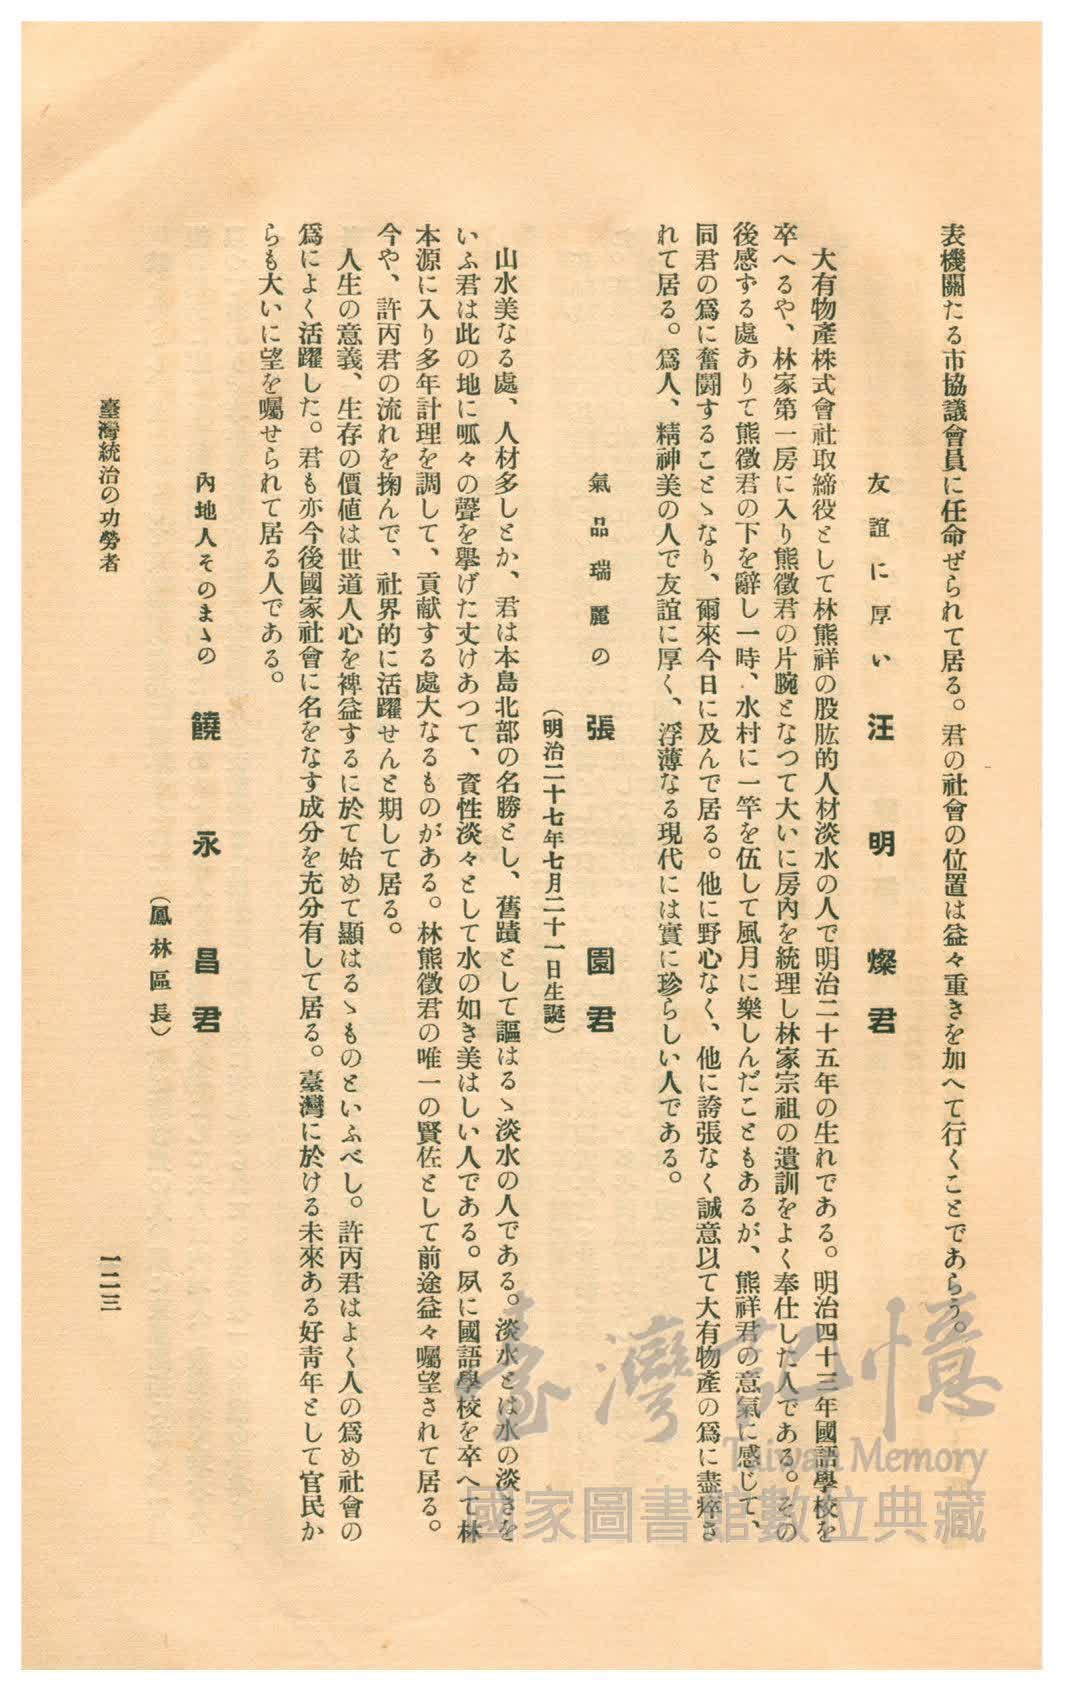 表機關たる市協議會員に任命ぜられて居る。君の社會の位置は益々重きを加へて行くことであらう。
友誼に厚い 汪明燦君
大有物產株式會社取締役として林熊祥の股肱的人材淡水の人で明治二十五年の生れである。明治四十三年國語學校を
卒へるや、林家第一房に入り熊徵君の片腕となつて大いに房內を統理し林家宗祖の遺訓をよく奉仕した人である。その
後感ずる處ありて熊徵君の下を辭し一時、水村に一竿を伍して風月に樂しんだこともあるが、熊祥君の意氣に感じて、
同君の爲に奮鬪することゝなり、爾來今日に及んで居る。他に野心なく、他に誇張なく誠意以て大有物產の爲に盡瘁さ
れて居る。爲人、精神美の人で友誼に厚く、浮薄なる現代には實に珍らしい人である。
氣品瑞麗の 張園君
（明治二十七年七月二十一日生誕）
山水美なる處、人材多しとか、君は本島北部の名勝とし、舊蹟として謳はるゝ淡水の人である。淡水とは水の淡さを
いふ君は此の地に呱々の聲を擧げた丈けあつて、資性淡々として水の如き美はしい人である。夙に國語學校を卒へて林
本源に入り多年計理を調して、貢献する處大なるものがある。林熊徵君の唯一の賢佐として前途益々囑望されて居る。
今や、許丙君の流れを掬んで、社界的に活躍せんと期して居る。
人生の意義、生存の價値は世道人心を裨益するに於て始めて顯はるゝものといふべし。許丙君はよく人の爲め社會の
爲によく活躍した。君も亦今後國家社會に名をなす成分を充分有して居る。臺灣に於ける未來ある好靑年として官民か
らも大いに望を囑せられて居る人である。
內地人そのまゝの 饒永昌君
（鳳林區長）
臺灣統治の功勞者 一二三
臺灣記憶
Taiwan Memory
國家圖書館數位典藏